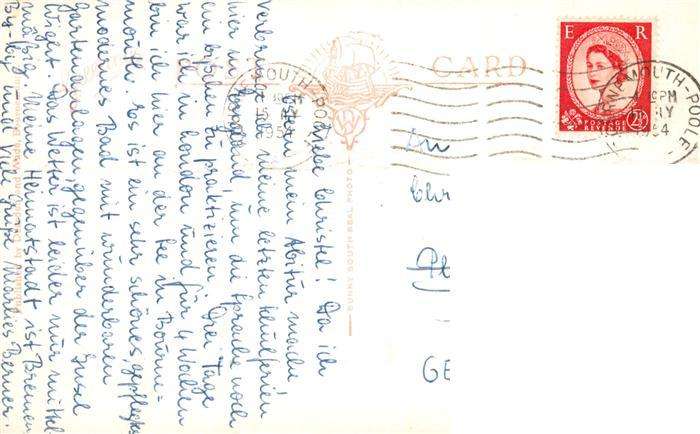 CARD
E R
POSTAGE
REVENUE
2½
MOUTH-POOLE
1954
BOURNEMOUTH-POOLE
PM
1954
SUNNY SOUTH REAL PHOTO
An
Chr
GE
Liebe Christel! Da ich
Ostern mein Abitur mache
verbringe ich meine letzten Schulferien
hier in England, um die Sprache noch
ein bißchen zu praktizieren. Drei Tage
war ich in London und für 4 Wochen
bin ich hier an der See in Bourne=
mouth. Es ist ein sehr schönes, gepflegtes
modernes Bad mit wunderbaren
Gartenanlagen, gegenüber der Insel
Wight. Das Wetter ist leider nur mittel-
mäßig. Meine Heimatstadt ist Bremen.
By-by! und viele Grüße Marlies Berner.